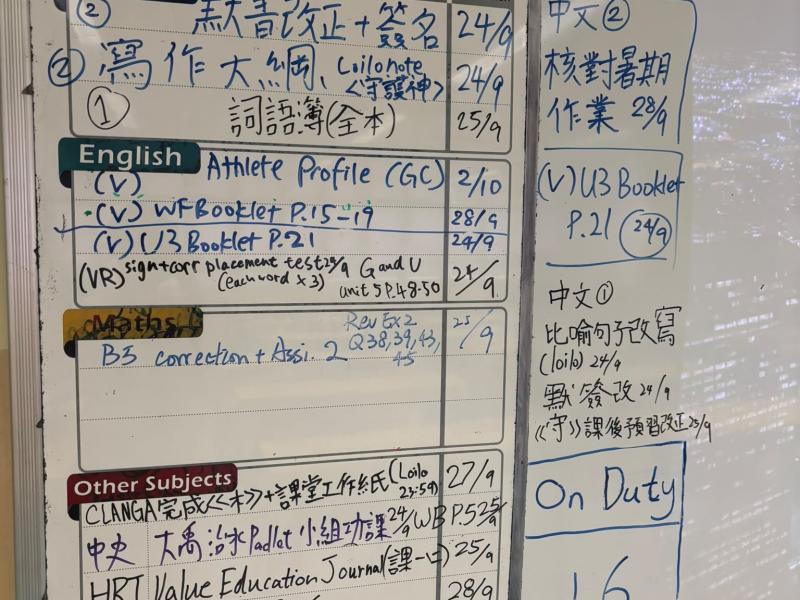 ② 默書改正+簽名 24/9
② 寫作大綱、Loilonote 24/9
《守護神》
① 詞語簿(全本) 25/9
English
(V) Athlete Profile (GC) 2/10
(V) WF Booklet P.15-19 28/9
(V) U3 Booklet P.21 24/9
(VR) sign+corr placement test 24/9 G and U 24/9
(each word x 3) unit 5 P.48-50
Maths
B3 correction + Assi. 2 Rev Ex2 25/9
Q38,39,43,
45
Other Subjects
CLANGA完成《木》+課堂工作紙(Loilo 23:59) 27/9
中央 大禹治水Padlet小組功課24/9 WB P.5 25/9
HRT Value Education Journal(課一) 25/9
28/9
中文②
核對暑期
作業 28/9
(V) U3 Booklet
P.21 24/9
中文①
比喻句子改寫
(loilo) 24/9
默簽改 24/9
《守》課後預習改正25/9
On Duty
16